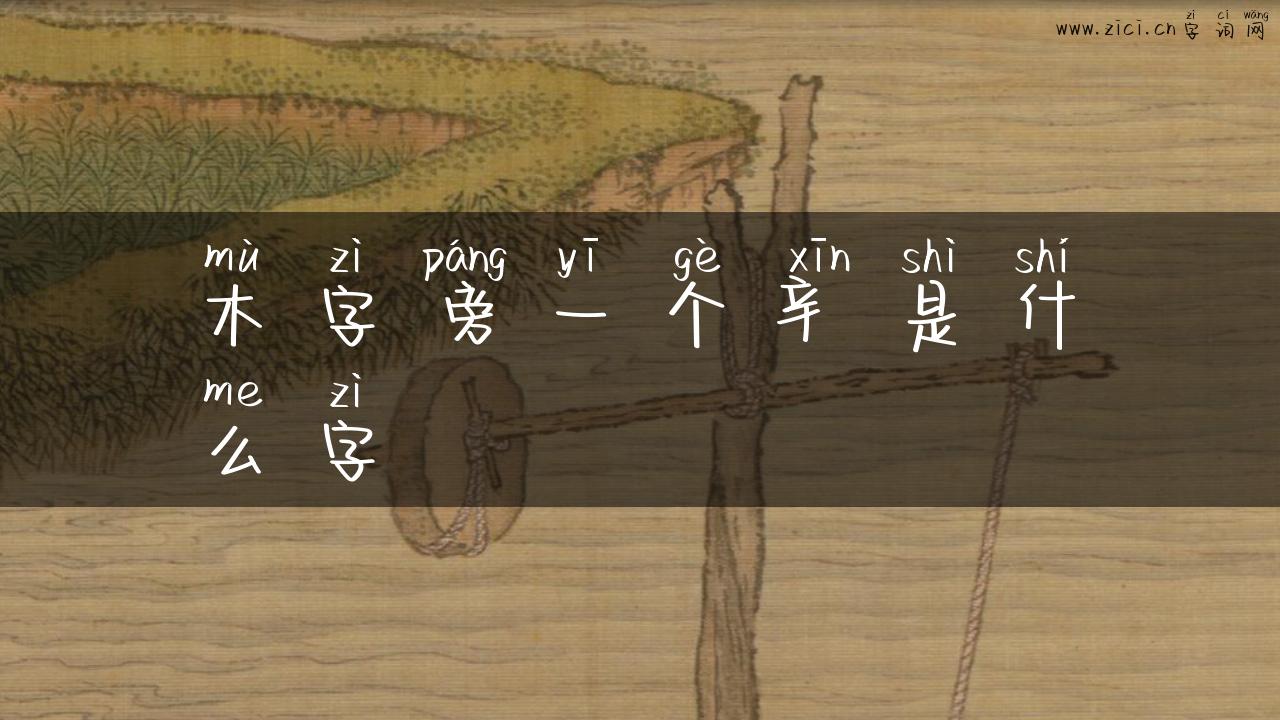 zì cí wǎng
www.zici.cn 字词网
mù zì páng yī gè xīn shì shí
木字旁一个辛是什
me zì
么字